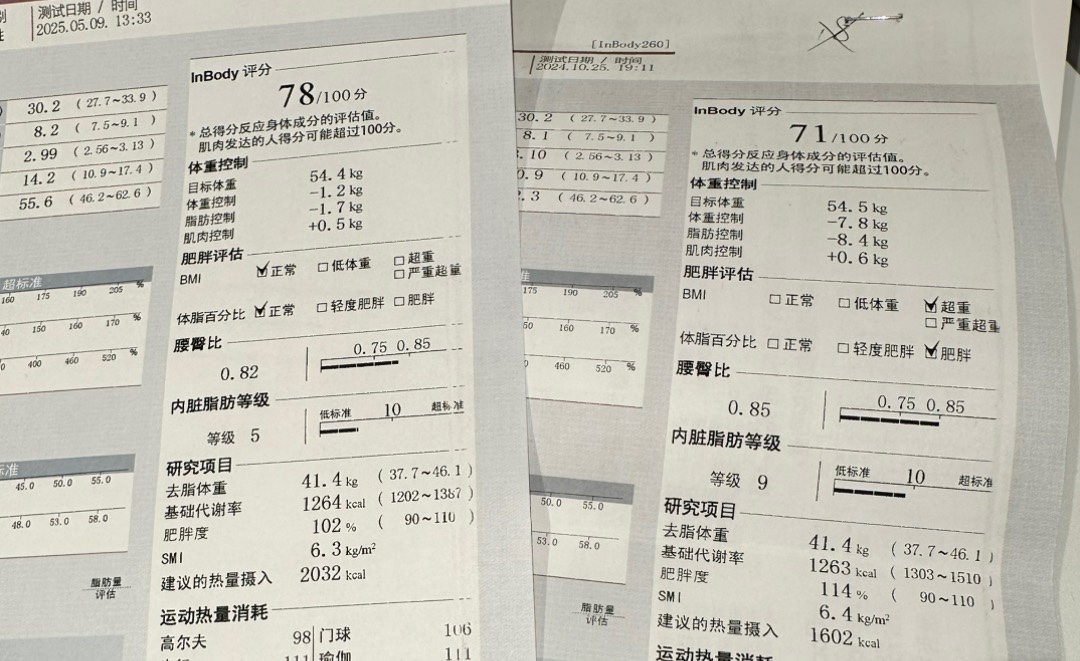 测试日期 / 时间
2025.05.09. 13:33
30.2 ( 27.7~33.9 )
8.2 ( 7.5~9.1 )
2.99 ( 2.56~3.13 )
14.2 ( 10.9~17.4 )
55.6 ( 46.2~62.6 )
超标准
160 175 190 205 %
40 150 160 170 %
400 460 520 %
标准
45.0 50.0 55.0
48.0 53.0 58.0
脂肪量
评估
InBody 评分
78/100 分
* 总得分反应身体成分的评估值。
肌肉发达的人得分可能超过100分。
体重控制
目标体重 54.4 kg
体重控制 -1.2 kg
脂肪控制 -1.7 kg
肌肉控制 +0.5 kg
肥胖评估
BMI ☑正常 □低体重 □超重
□严重超重
体脂百分比 ☑正常 □轻度肥胖 □肥胖
腰臀比
0.75 0.85
0.82
内脏脂肪等级
低标准 10 超标准
等级 5
研究项目
去脂体重 41.4 kg ( 37.7~46.1 )
基础代谢率 1264 kcal ( 1202~1387 )
肥胖度 102 % ( 90~110 )
SMI 6.3 kg/m²
建议的热量摄入 2032 kcal
运动热量消耗
高尔夫 98 门球 106
111 瑜伽 111
[InBody260]
测试日期 / 时间
2024.10.25. 19:11
30.2 ( 27.7~33.9 )
8.1 ( 7.5~9.1 )
.10 ( 2.56~3.13 )
0.9 ( 10.9~17.4 )
.3 ( 46.2~62.6 )
准
175 190 205 %
50 160 170 %
460 520 %
50.0 55.0
53.0 58.0
脂肪量
评估
InBody 评分
71/100 分
* 总得分反应身体成分的评估值。
肌肉发达的人得分可能超过100分。
体重控制
目标体重 54.5 kg
体重控制 -7.8 kg
脂肪控制 -8.4 kg
肌肉控制 +0.6 kg
肥胖评估
BMI □正常 □低体重 ☑超重
□严重超重
体脂百分比 □正常 □轻度肥胖 ☑肥胖
腰臀比
0.75 0.85
0.85
内脏脂肪等级
低标准 10 超标准
等级 9
研究项目
去脂体重 41.4 kg ( 37.7~46.1 )
基础代谢率 1263 kcal ( 1303~1510 )
肥胖度 114 % ( 90~110 )
SMI 6.4 kg/m²
建议的热量摄入 1602 kcal
运动热量消耗